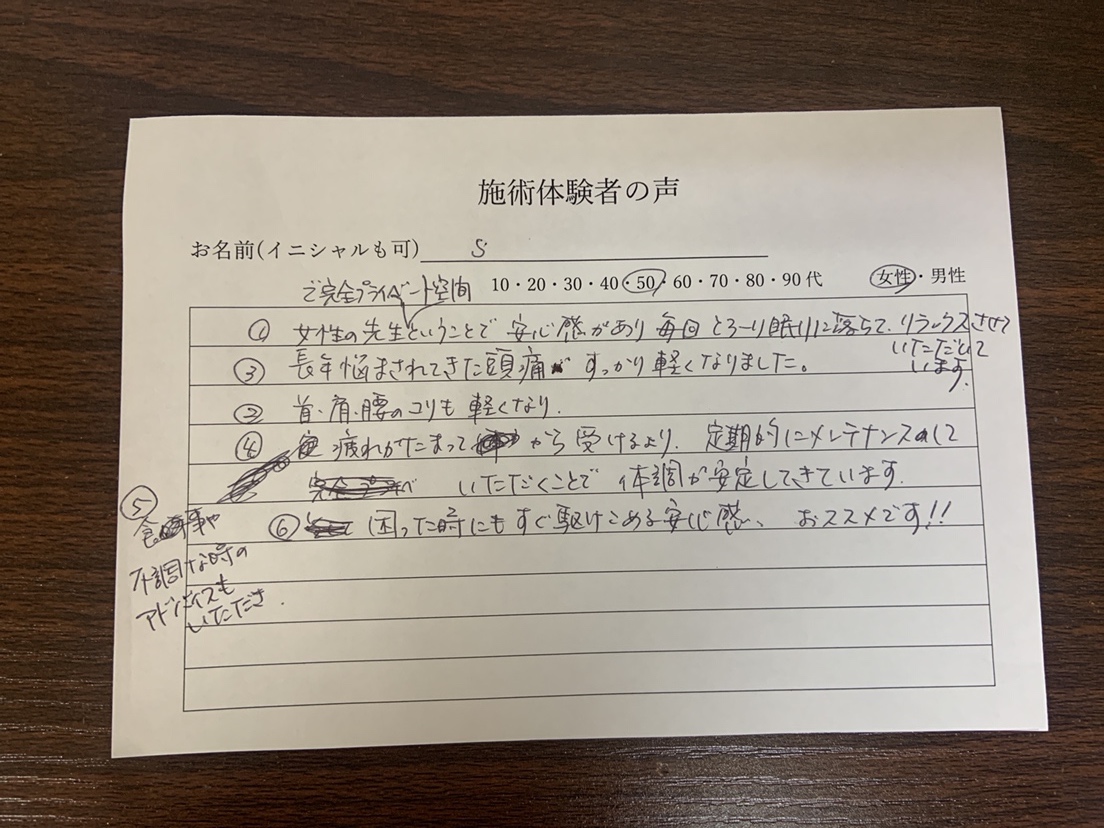 施術体験者の声
お名前(イニシャルも可) S
10・20・30・40・50・60・70・80・90代 女性・男性
で完全プライベート空間
① 女性の先生ということで 安心感があり 毎回 とろーり眠りに落ちて、リラックスさせて
いただいて
います。
③ 長年悩まされてきた頭痛が すっかり軽くなりました。
② 首、肩、腰のコリも 軽くなり、
④ 疲れがたまってから 受けるより、定期的にメンテナンスして
いただくことで 体調が安定してきています。
⑤
食事や
不調な時の
アドバイスも
いただき、
⑥ 困った時にもすぐ駆けこめる安心感、 おススメです!!